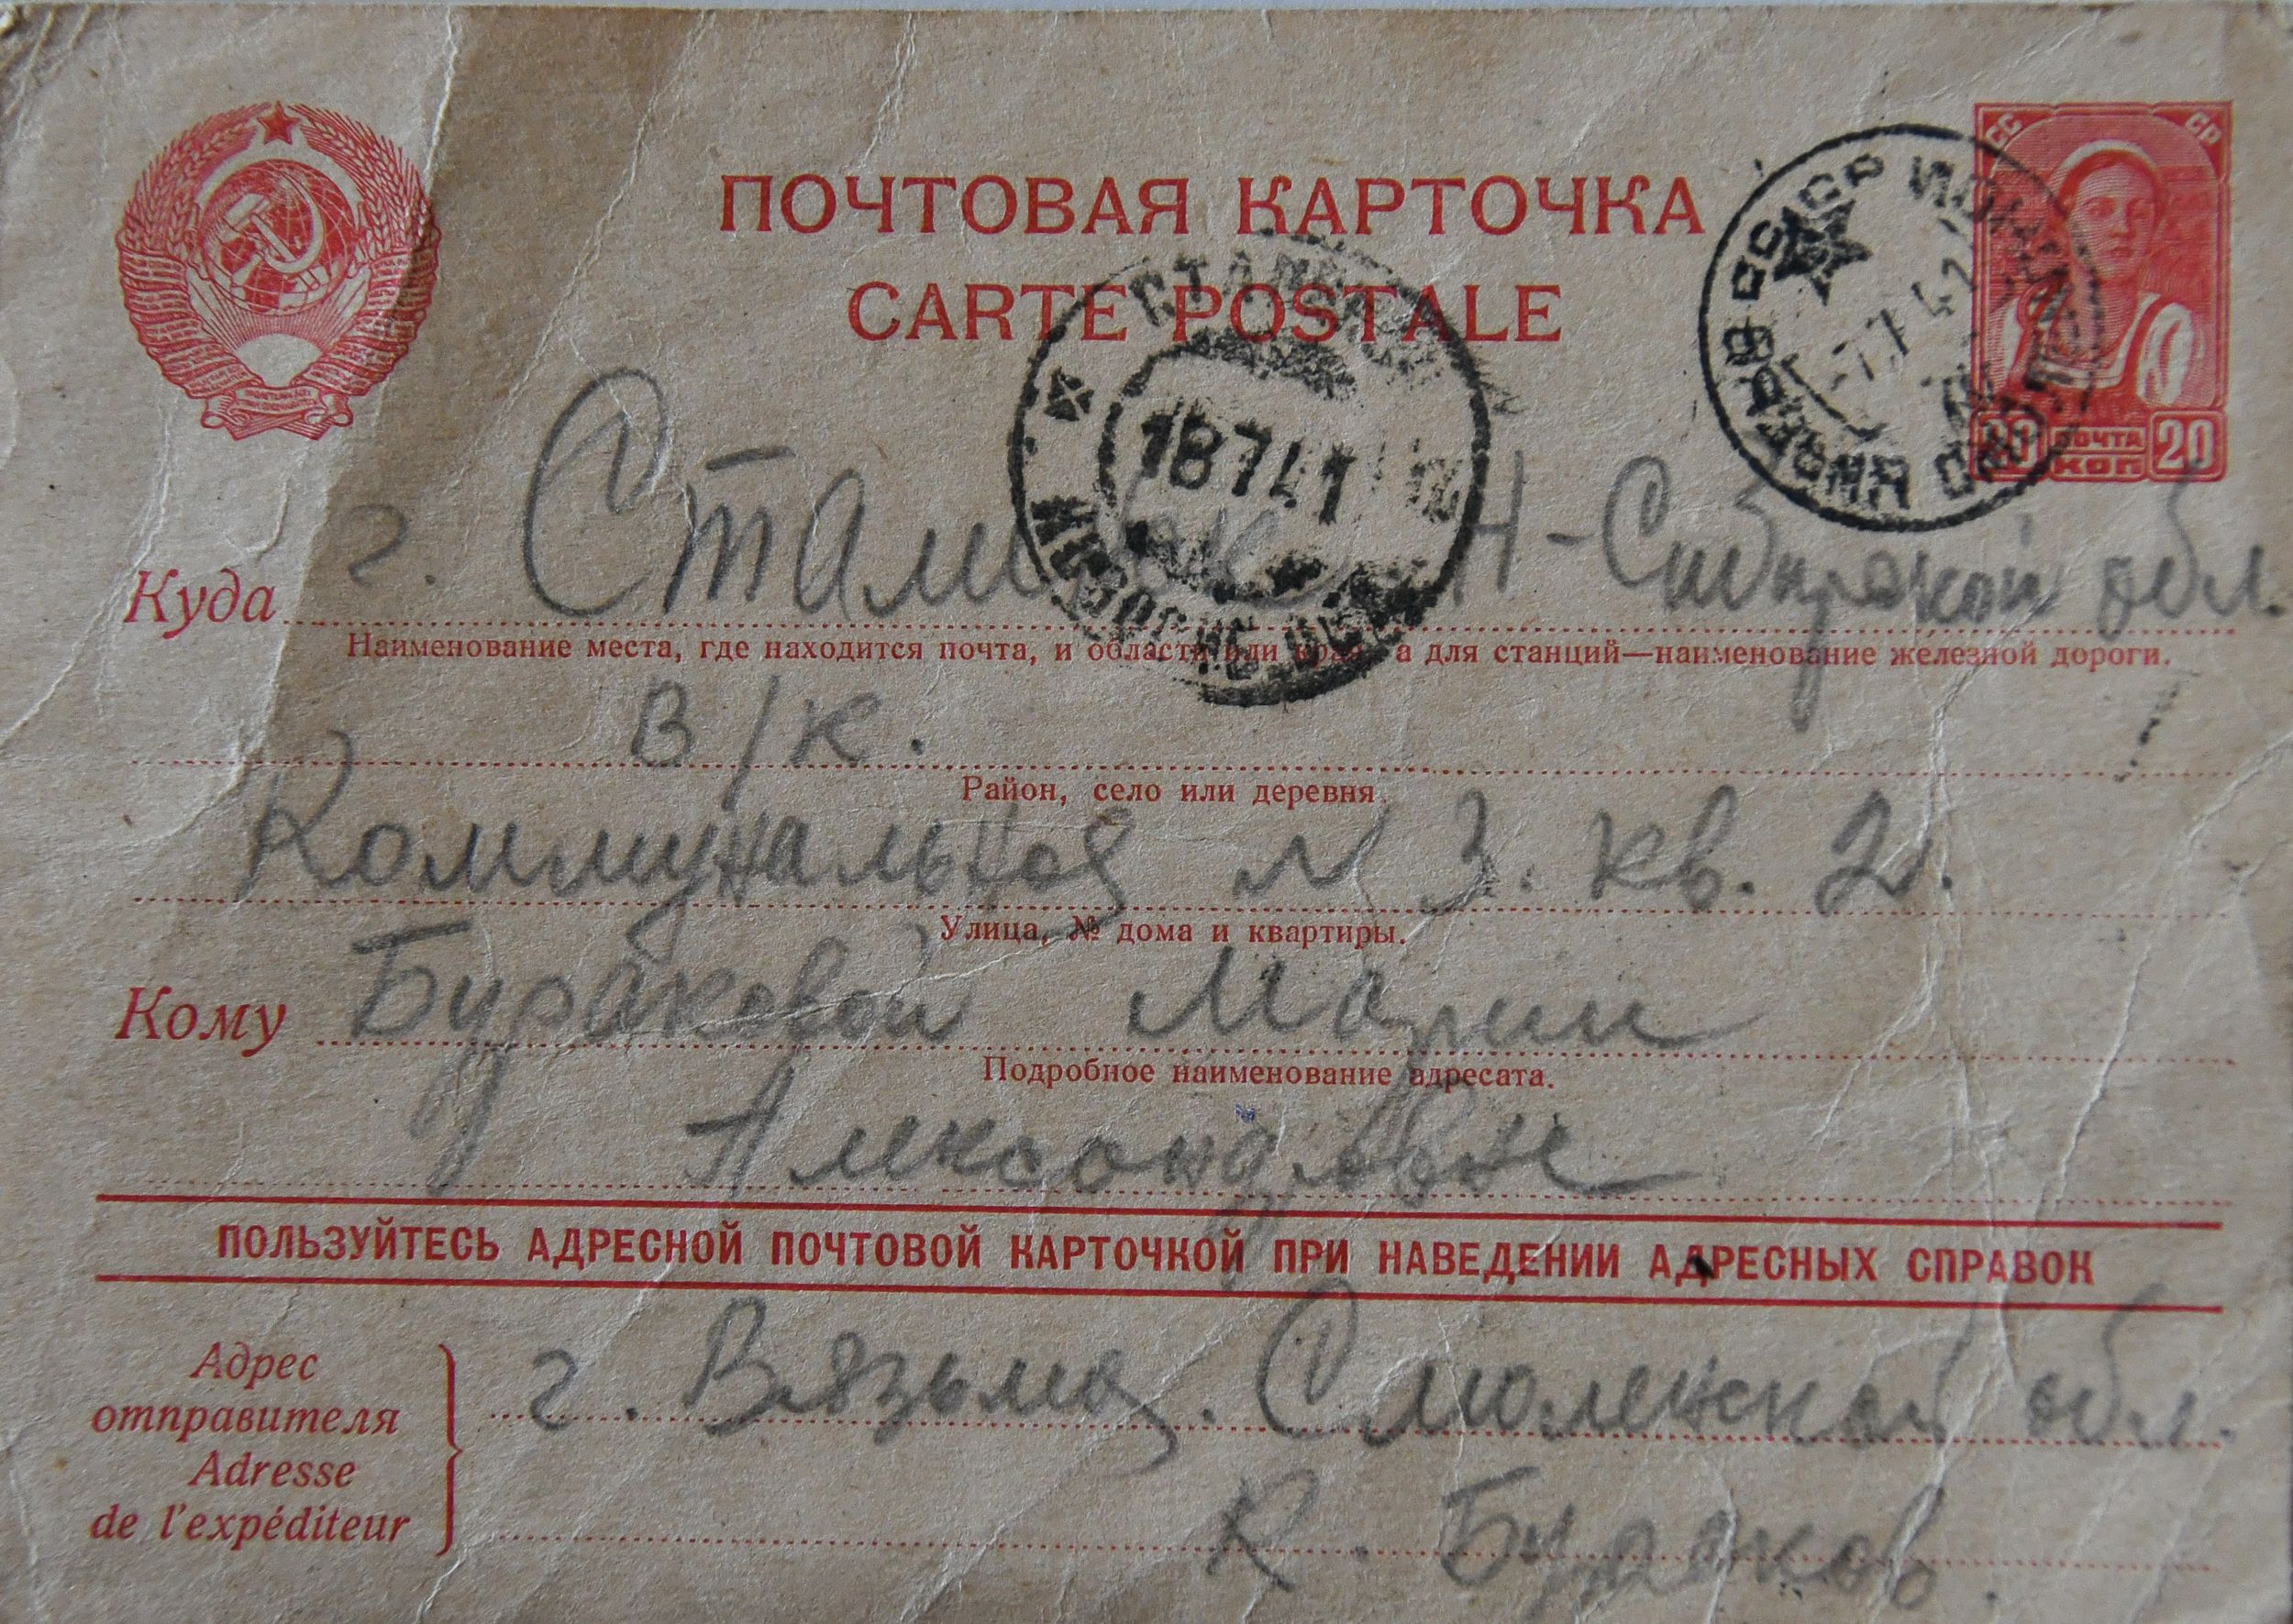 ПОЧТОВАЯ КАРТОЧКА
CARTE POSTALE
СС СР
20 ПОЧТА КОП 20
18 7 41
Куда г. Сталинск Н-Сибирской обл.
Наименование места, где находится почта, и области или края, а для станций—наименование железной дороги.
В/К.
Район, село или деревня
Коммунальная № 3. кв. 2.
Улица, № дома и квартиры.
Кому Бураковой Марии
Подробное наименование адресата.
Александровне
ПОЛЬЗУЙТЕСЬ АДРЕСНОЙ ПОЧТОВОЙ КАРТОЧКОЙ ПРИ НАВЕДЕНИИ АДРЕСНЫХ СПРАВОК
Адрес
отправителя
Adresse
de l'expéditeur
г. Вязьма. Смоленской обл.
К. Бураков.